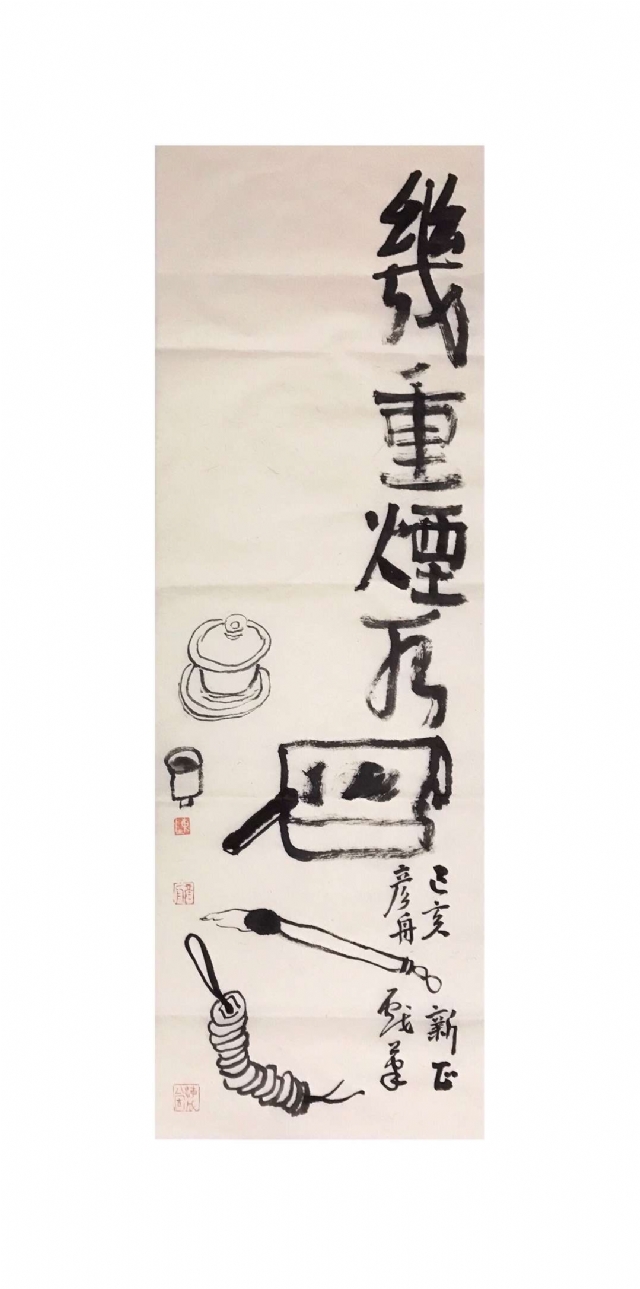 幾重煙
己亥新正
彥舟戲筆